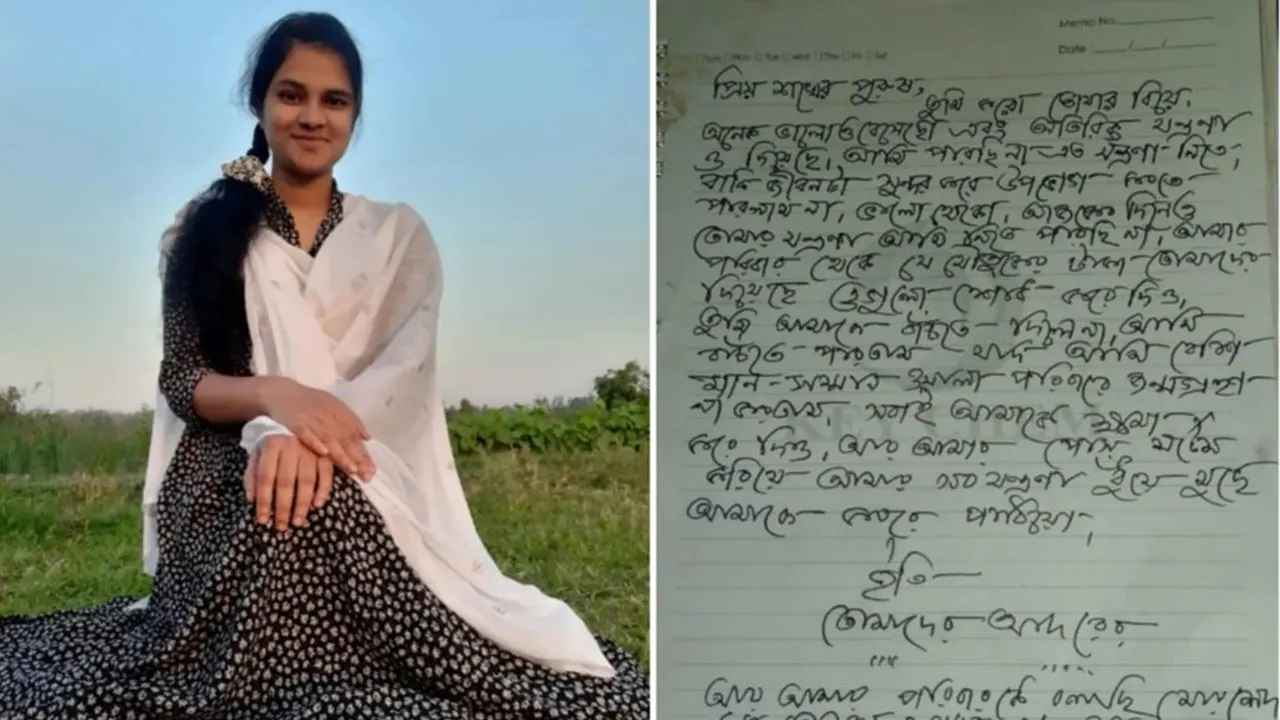 Memo No.
Date : / /
প্রিয় শখের পুরুষ,
তুমি করো তোমার বিয়ে,
অনেক ভালোও বেসেছো এবং অতিরিক্ত যন্ত্রণা
ও দিয়েছো, আমি পারছি না এত যন্ত্রণা নিতে,
বাকি জীবনটা সুন্দর করে উপভোগ করতে
পারলাম না, ভালো থেকো, আজকের দিনেও
তোমার যন্ত্রণা আমি নিতে পারছি না, আমার
পরিবার থেকে যে যৌতুকের টাকা তোমাদের
দিয়েছে ওগুলো শোধ করে দিও,
তুমি আমাকে বাঁচতে দিলে না, আমি
বাঁচতে পারতাম যদি আমি বেশি
মান-সম্মান ওয়ালা পরিবারে জন্মগ্রহণ
না করতাম, সবাই আমাকে ক্ষমা
করে দিও, আর আমার পোস্ট মর্টেম
করিয়ে আমার সব যন্ত্রণা ধুয়ে মুছে
আমাকে কবরে পাঠিয়ো,
ইতি—
তোমাদের আদরের
আর আমার পরিবারকে বলছি